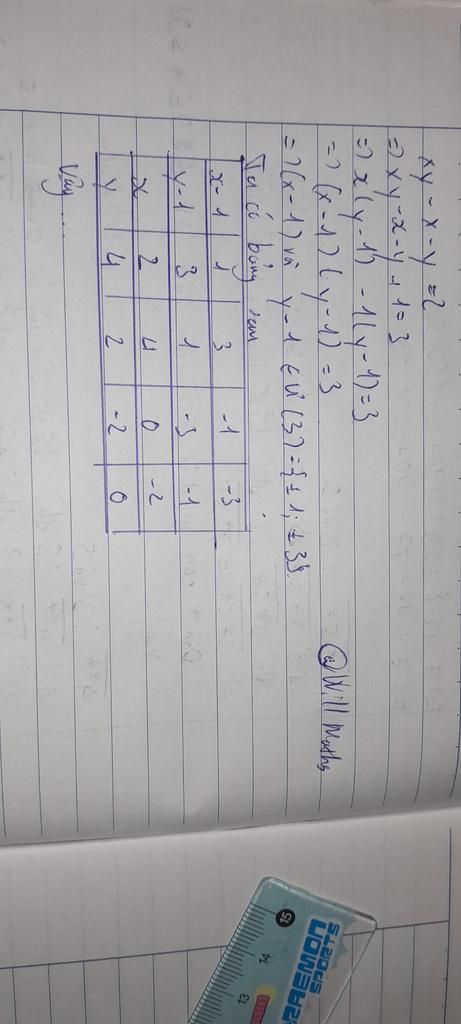 xy - x - y = 2
=> xy - x - y + 1 = 3
=> x(y-1) - 1(y-1) = 3
=> (x-1)(y-1) = 3
@Will Maths
=> (x-1) và y-1 ∈ Ư(3) = {±1; ±3}.
Ta có bảng sau
x-1 1 3 -1 -3
y-1 3 1 -3 -1
x 2 4 0 -2
y 4 2 -2 0
Vậy ...
15 14 13
DORAEMON
SPORTS